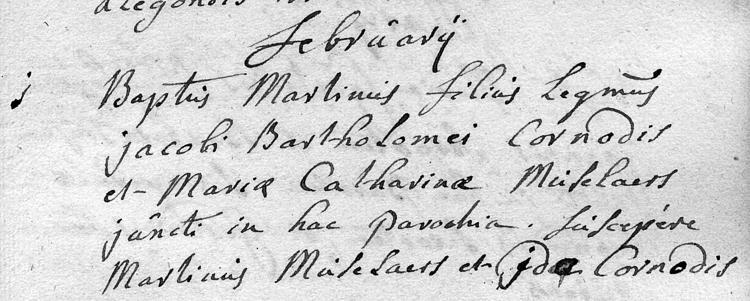 februarij
j Baptus Martinus filius Legmus
jacobi Bartholomei Cornodis
et Mariæ Catharinæ Muselaers
juncti in hac parochia. suscepére
Martinus Muselaers et ida Cornodis